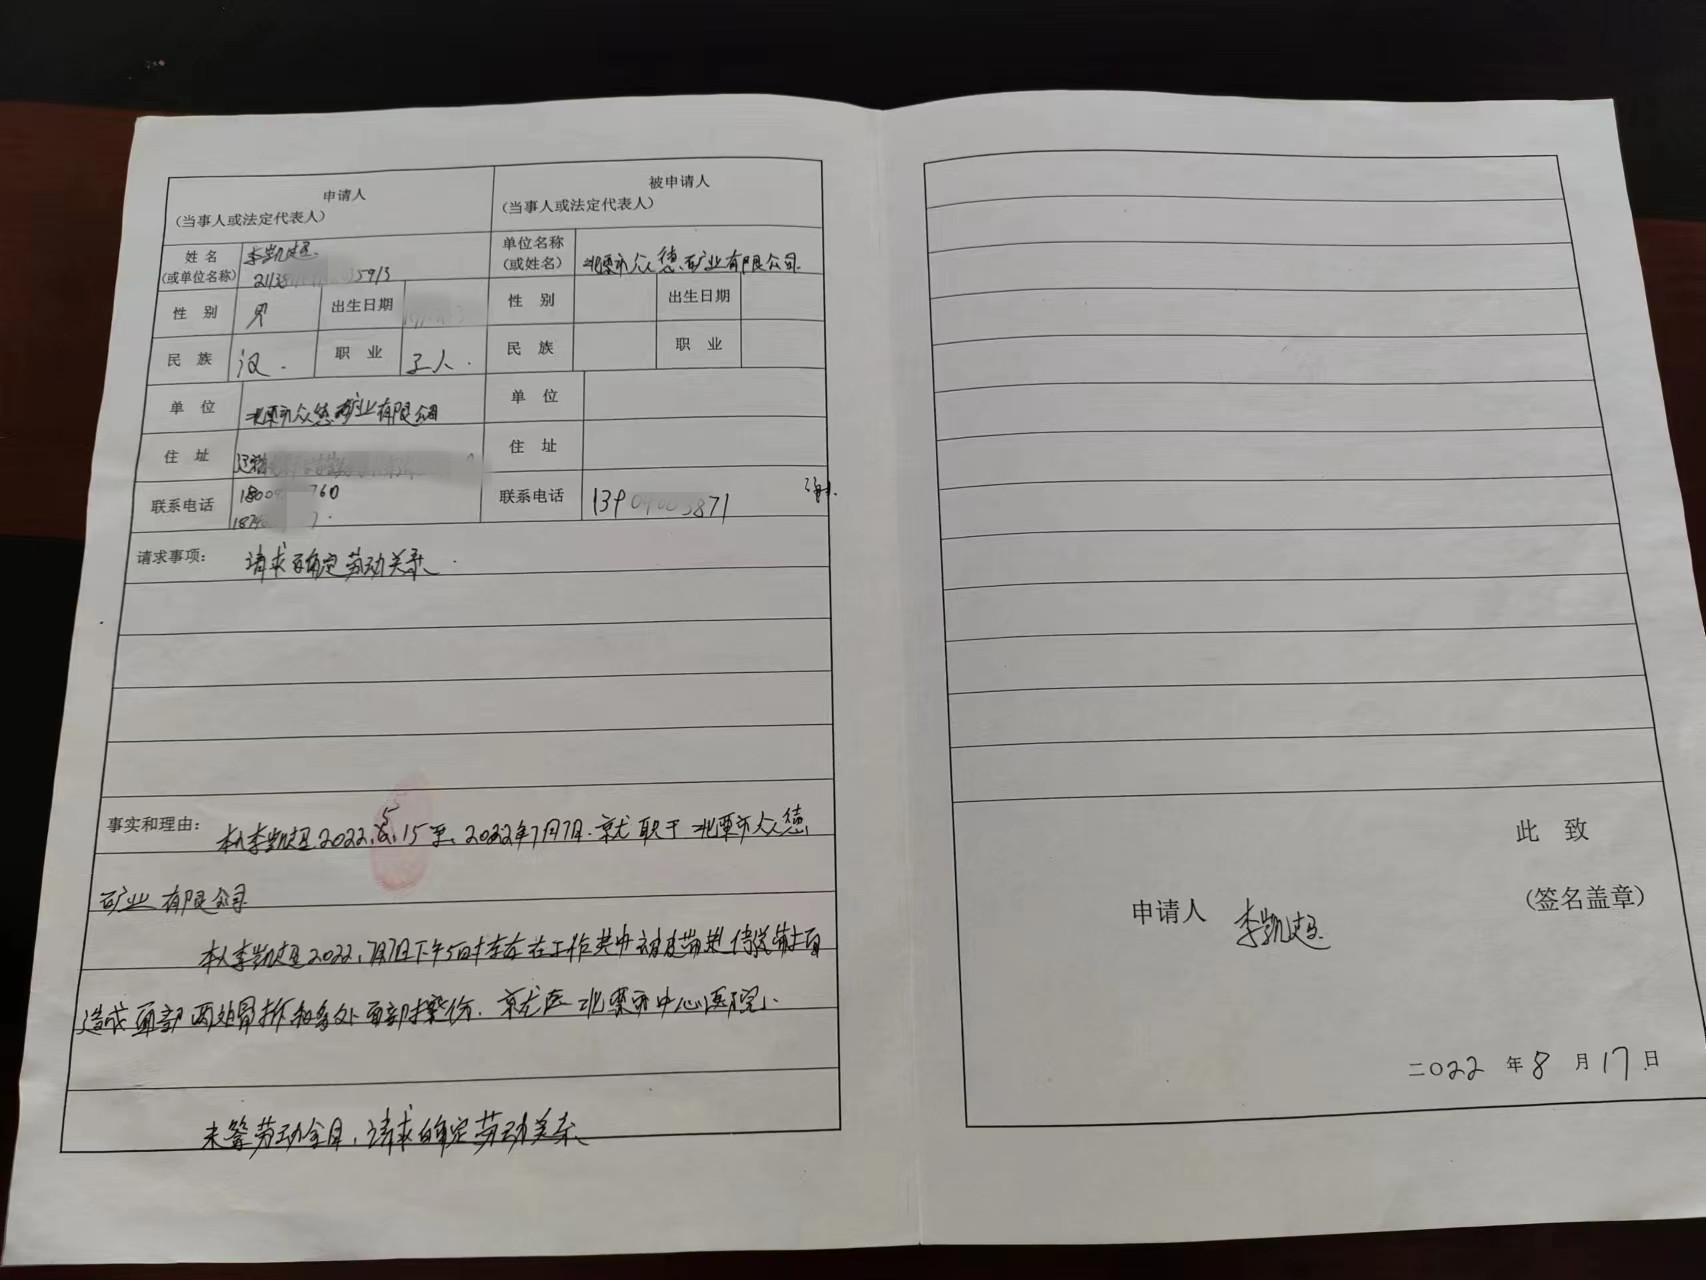 申请人
(当事人或法定代表人)
被申请人
(当事人或法定代表人)
姓名
(或单位名称)
李凯超
5913
单位名称
(或姓名)
北票市众德矿业有限公司
性别 男 出生日期
性别 出生日期
民族 汉. 职业 工人.
民族 职业
单位 北票市众德矿业有限公司
单位
住址 辽
住址
联系电话 1800 760
187
联系电话 139 3871
请求事项: 请求确定劳动关系.
事实和理由: 本人李凯超2022.5.15至.2022年7月7日.就职于北票市众德
矿业有限公司
本人李凯超2022.7月7日下午5时左右在工作其中被皮带
造成面部两处骨折和多处面部擦伤.就医北票市中心医院.
未签劳动合同,请求确定劳动关系
此致
申请人 李凯超
(签名盖章)
二〇22年8月17日